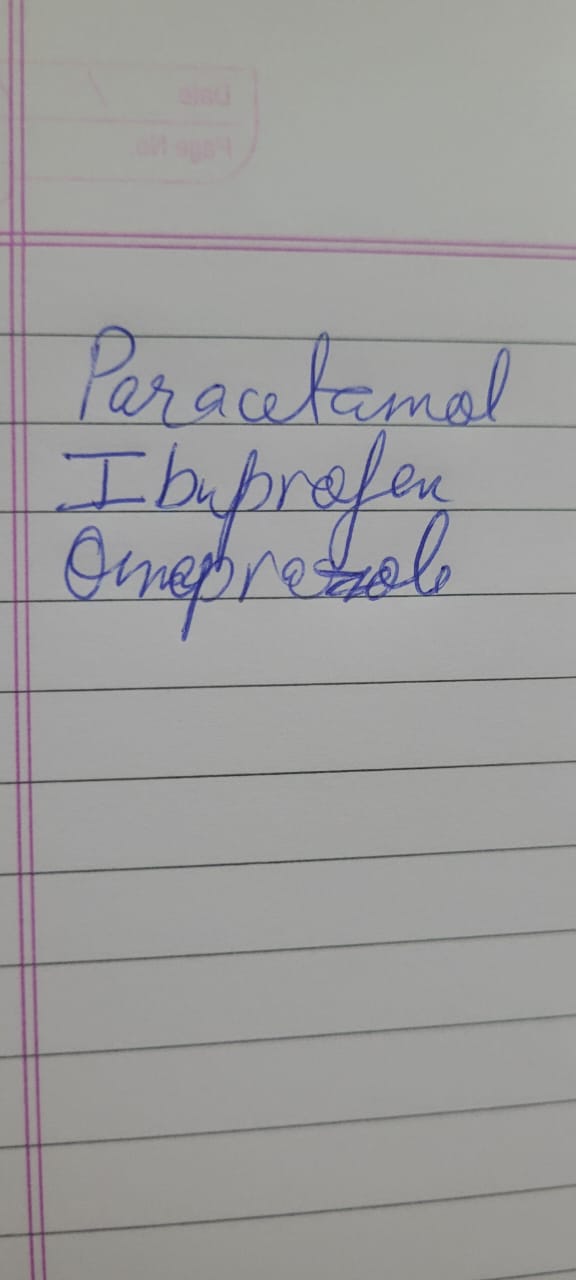 Date
Page No.
Paracetamol
Ibuprofen
Omeprazole